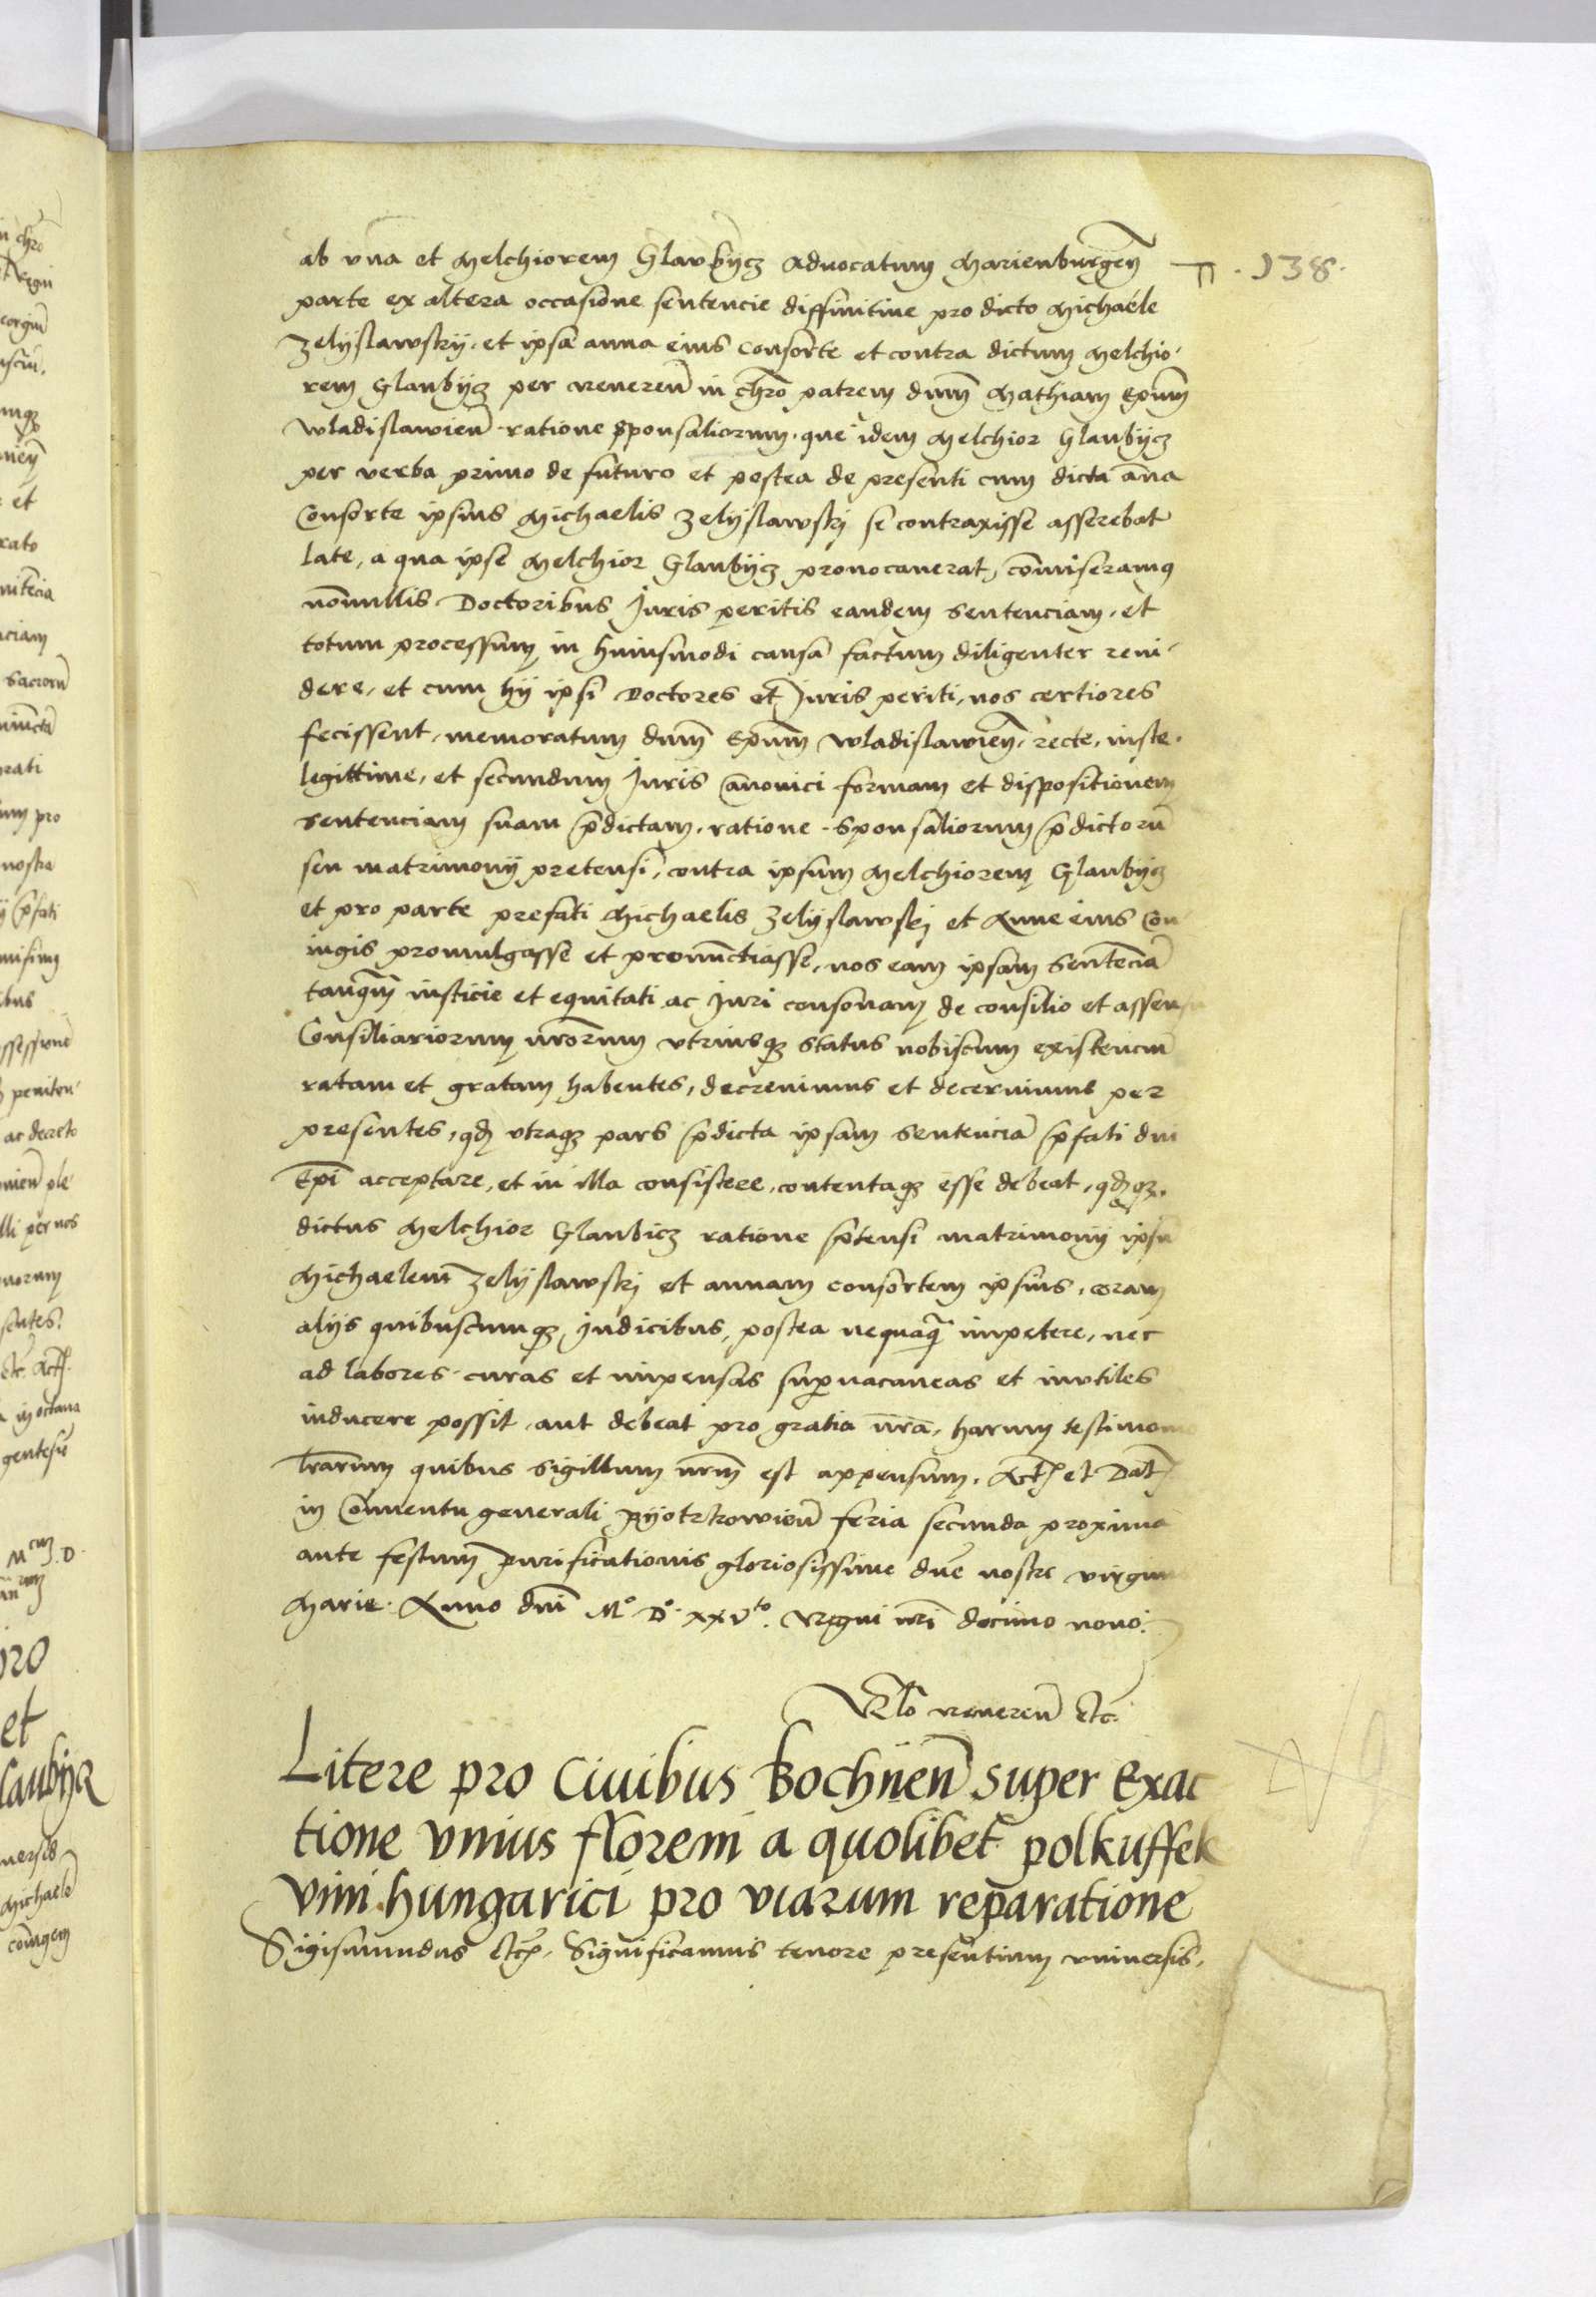 138.
ab vna et Melchiorem Glaubycz Aduocatum Marienburgeñ
parte ex altera occasione sentencie diffinitiue pro dicto Michaele
Zelyslawsky et ipsa anna eius consorte et contra dictum Melchio-
rem Glaubycz per Reuereñ in chr̃o patrem dnm̃ Mathiam Ep̃um
wladislawieñ ratione sponsaliorum, que idem Melchior Glaubycz
per verba primo de futuro et postea de presenti cum dicta añna
Consorte ipsius Michaelis Zelyslawskj se contraxisse asserebat
late, a qua ipse Melchior Glaubycz prouocauerat, com̃iseramus
non̄nullis Doctoribus Juris peritis eandem sentenciam, et
totum processum in huiusmodi causa factum diligenter reui-
dere, et cum hij ipsi Doctores et Juris periti, nos certiores
fecissent, memoratum dnm̃ Ep̃um wladislawieñ, recte, iuste,
legittime, et secundum Juris Canonici formam et dispositionem
sentenciam suam p̃dictam, ratione sponsaliorum p̃dictorũ
seu matrimonij pretensi, contra ipsum Melchiorem Glaubycz
et pro parte prefati Michaelis Zelyslawskj et Anne eius Con
iugis promulgasse et pronunctiasse, nos eam ipsam sentenciã
tanq̃m iusticie et equitati ac Juri consonam de consilio et assensu
Consiliariorum nr̃orum vtriusq; status nobiscum existenciũ
ratam et gratam habentes, decreuimus et decernimus per
presentes, qd vtraq; pars p̃dicta ipsam sentenciã p̃fati dni
Ep̃i acceptare, et in illa consistere, contentaq; esse debeat, qdq;
dictus Melchior Glaubicz ratione p̃tensi matrimonij ipsũ
Michaelem Zelyslawskj et annam consortem ipsius, coram
alijs quibuscumq; Judicibus, postea nequaq̃ impetere, nec
ad labores curas et impensas supuacaneas et invtiles
inducere possit aut debeat pro gratia nr̃a, harum testimonio
lr̃arum quibus sigillum nr̃m est appensum. Act et Dat
in Conuentu generali Pyotrkowieñ feria secunda proxima
ante festum Purificationis gloriosissime dñe nostre virginis
Marie. Anno dnĩ M° D° xxvto. Regni nr̃i decimo nono.
Rlo Reuereñ etc.
Litere pro Ciuibus Bochneñ super Exac
tione vnius floreni a quolibet polkuffek
vini hungarici pro viarum reparatione
Sigismundus etc. Significamus tenore presentium vniuersis,